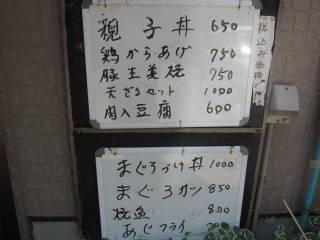 親子丼 650
鶏からあげ 750
豚生姜焼 750
天ざるセット 1000
肉入豆腐 600
税込み価格です
まぐろづけ丼 1000
まぐろカツ 850
焼魚 800
あじフライ